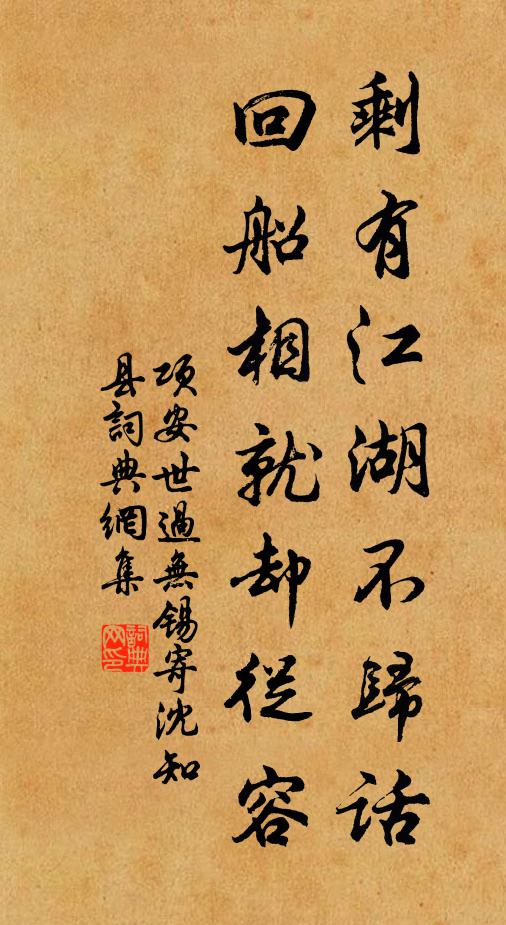 剩有江湖不歸話
回船相就却從容
項安世過無錫寄沈知
县詞典網集
詞典網印